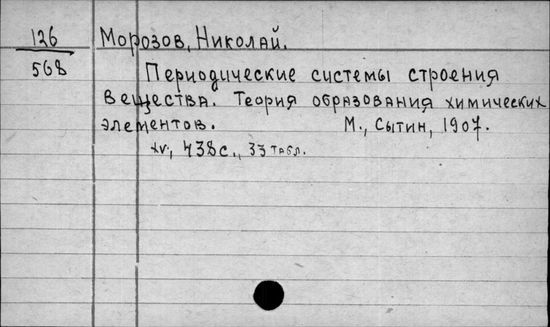 126 Морозов, Николай.
568 Периодические системы строения
вещества. Теория образования химических
элементов. М., Сытин, 1907.
XV, 438с., 33 табл.